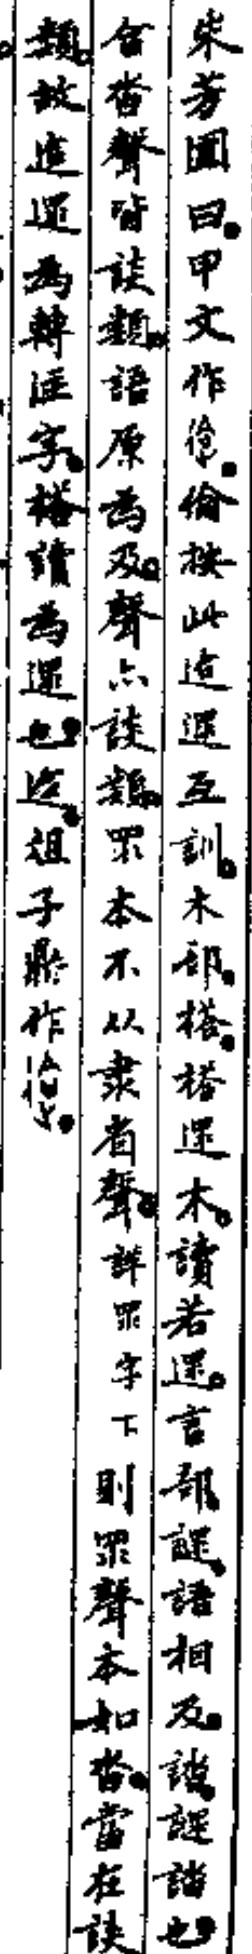 朱芳圃曰。甲文作𢓊。倫按此迨遝互訓。木部。榙。榙𣛕木。讀若遝。言部。謎。語相及。誻。謎誻也。
合沓聲皆談類。語原為及。聲亦談類。眔本不从隶省聲。詳眔字下則眔聲本如沓。當在談
類。故迨遝為轉注字。榙讀為遝也。迨。俎子鼎作